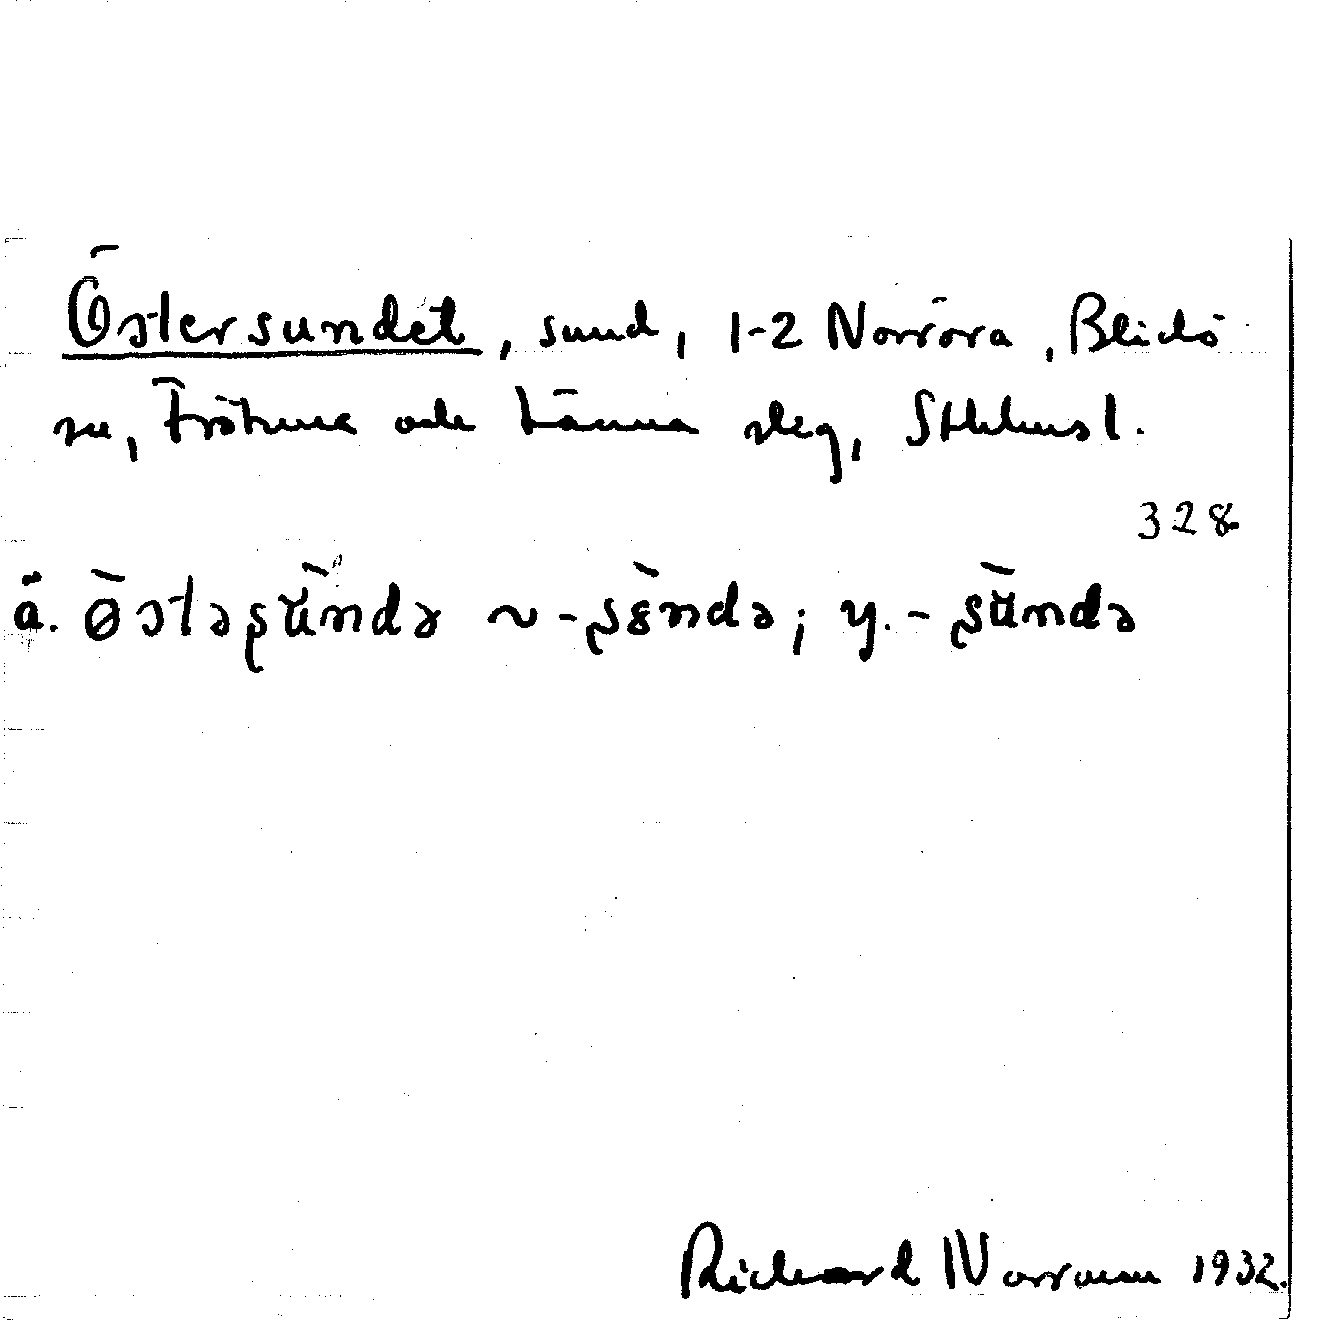 Östersundet, sund, 1-2 Norröra, Blidö
sn, Frötuna och Länna slg, Sthlmsl.
328
ä. ø̀stəʂùndə ~ -ʂɛ̀ndə; y. -ʂùndə
Richard Norrman 1932.